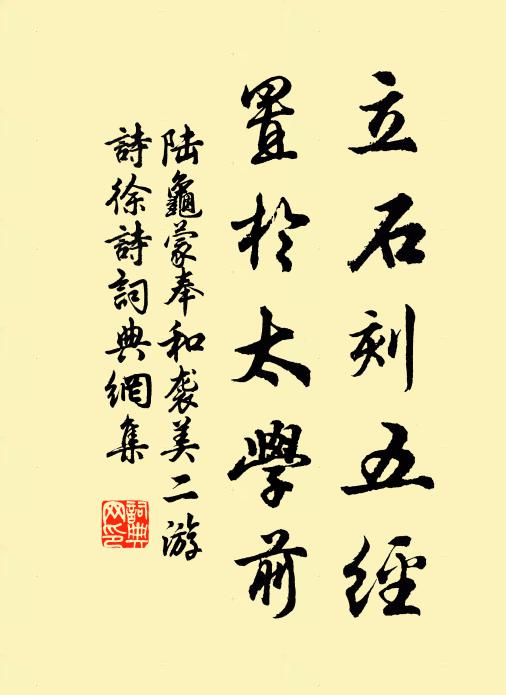 立石刻五經
置於太學前
陸龜蒙奉和袭美二游
詩徐詩詞典網集
詞典
网印